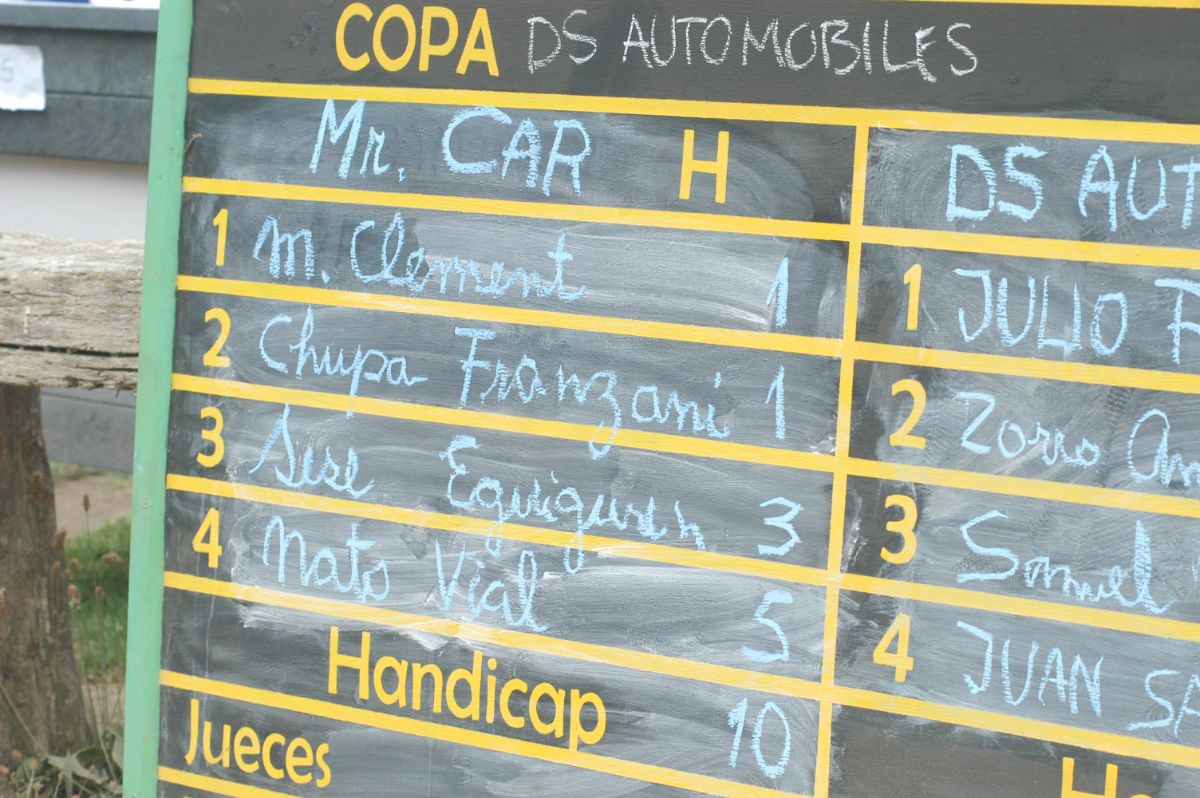 COPA DS AUTOMOBILES
Mr. CAR H
1 M. Clement 1
2 Chupa Franzani 1
3 Sese Eguiguren 3
4 Nato Vial 5
Handicap 10
Jueces
DS AUT
1 JULIO F
2 Zorro
3 Samuel
4 JUAN SA